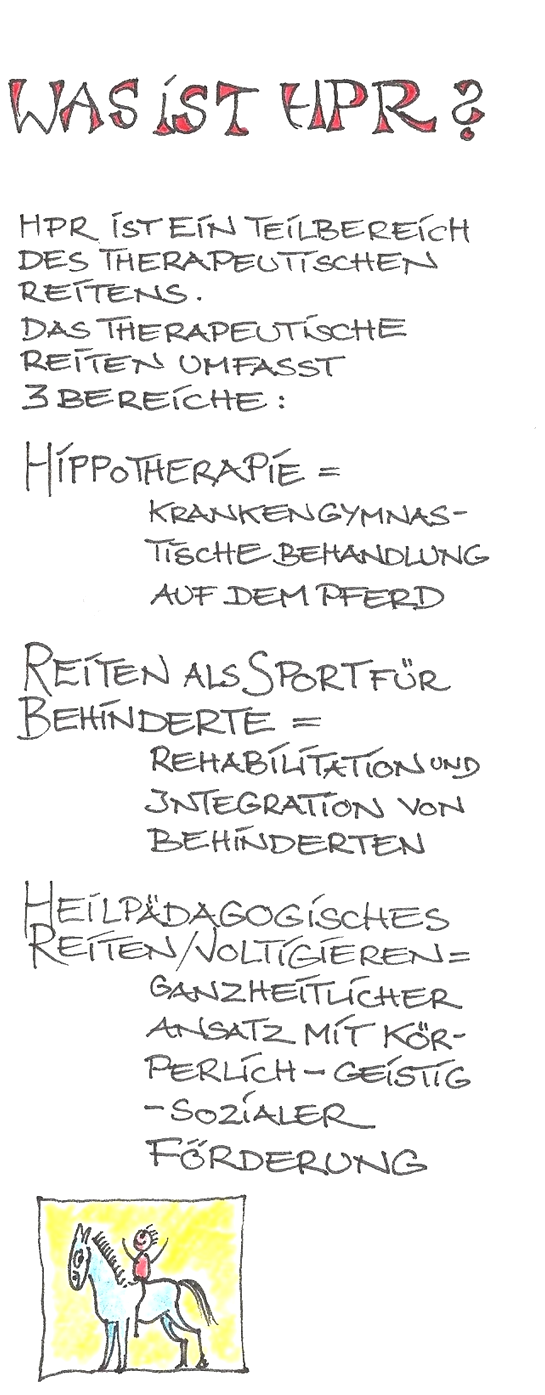 WAS IST HPR?
HPR IST EIN TEILBEREICH
DES THERAPEUTISCHEN
REITENS.
DAS THERAPEUTISCHE
REITEN UMFASST
3 BEREICHE:
HIPPOTHERAPIE =
KRANKENGYMNAS-
TISCHE BEHANDLUNG
AUF DEM PFERD
REITEN ALS SPORT FÜR
BEHINDERTE =
REHABILITATION UND
INTEGRATION VON
BEHINDERTEN
HEILPÄDAGOGISCHES
REITEN/VOLTIGIEREN =
GANZHEITLICHER
ANSATZ MIT KÖR-
PERLICH - GEISTIG
- SOZIALER
FÖRDERUNG